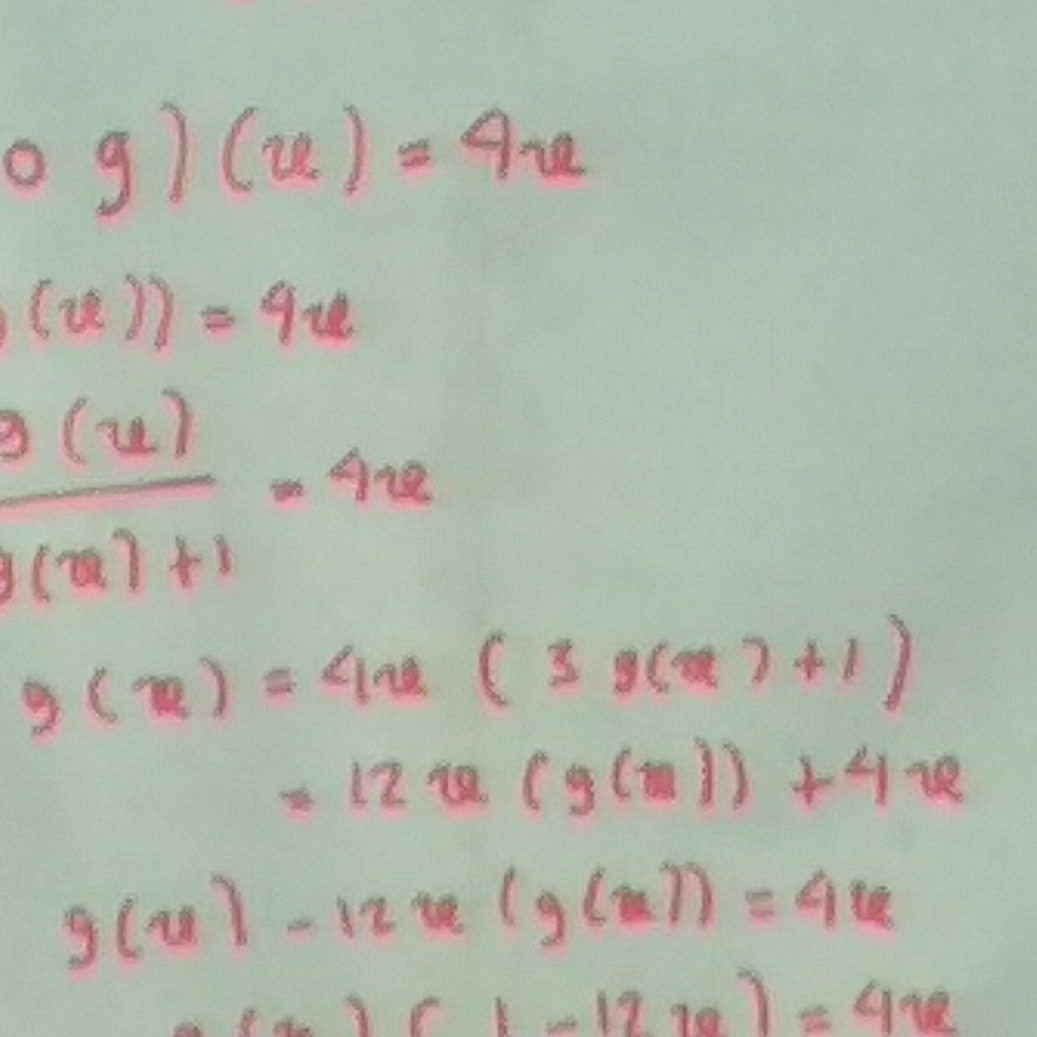 o g)(x) = 4x
(x)) = 4x
g(x)
= 4x
g(x)+1
g(x) = 4x (3 g(x)+1)
= 12x (g(x)) + 4x
g(x) - 12x (g(x)) = 4x
g(x)(1 - 12x) = 4x